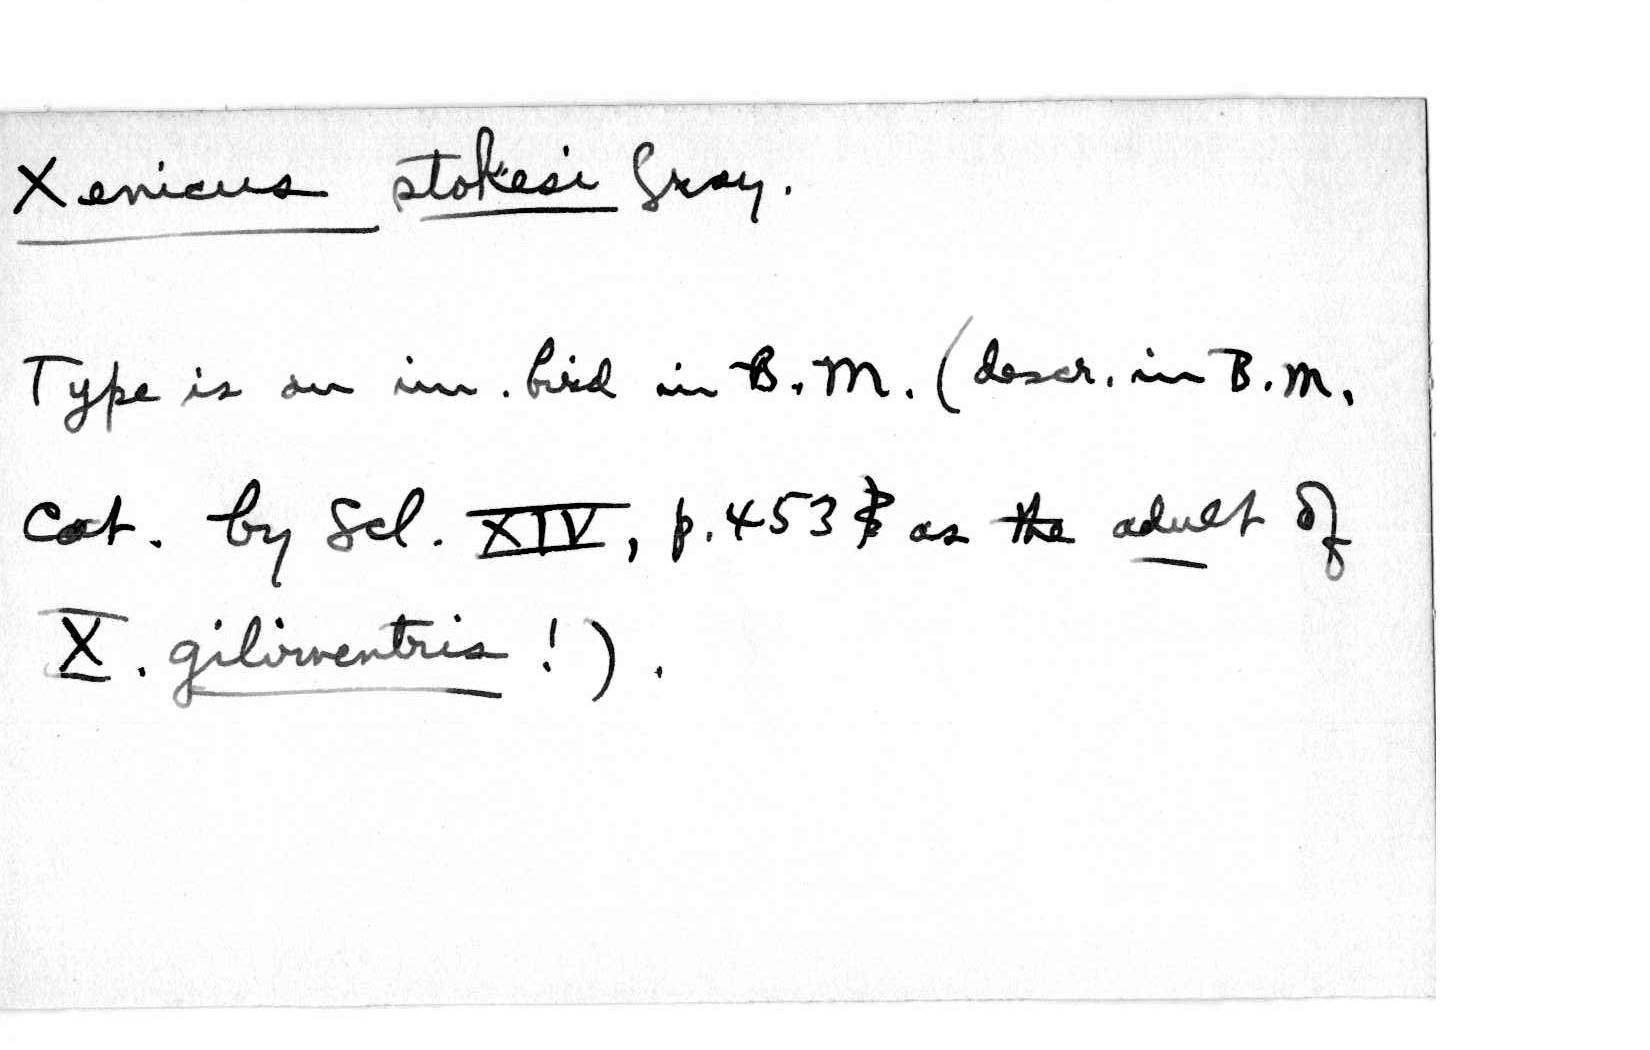 Xenicus stokesi Gray.
Type is an im. bird in B.M. (descr. in B.M.
Cat. by Scl. XIV, p. 453 as the adult of
X. gilviventris!).